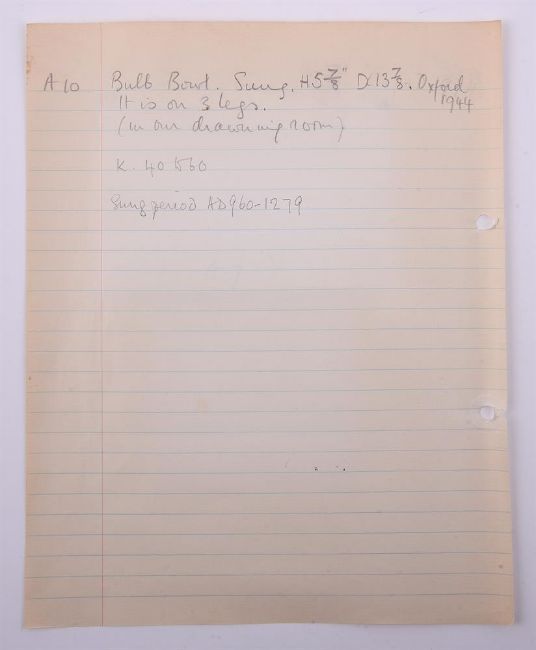 A 10 Bulb Bowl. Sung. H 5 7/8" D. 13 7/8. Oxford 1944
It is on 3 legs.
(in our drawning room)
K. 40 to 60
Sung period AD 960-1279